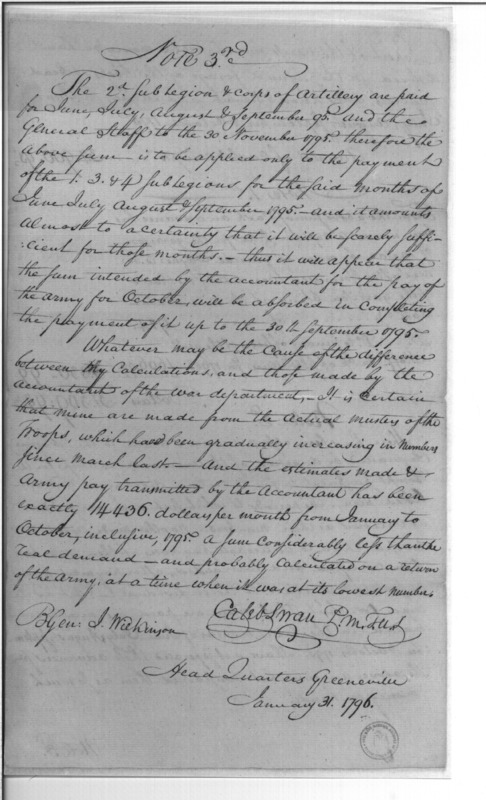 Note 3rd.
The 2d. Sub Legion & corps of Artillery are paid
for June, July, August & September 95. and the
General Staff to the 30 November 1795. therefore the
above sum is to be applied only to the payment
of the 1. 3. & 4 Sub Legions for the said months of
June July August & September 1795.- and it amounts
almost to a certainty that it will be scarcely suffi-
:cient for those months. - thus it will appear that
the sum intended by the accountant for the pay of
the army for October, will be absorbed in completing
the payment of it up to the 30th September 1795.
Whatever may be the Cause of the difference
between my Calculations, and those made by the
accountant of the war department, - It is certain
that mine are made from the actual musters of the
Troops, which have been gradually increasing in Numbers
since March last. - And the estimates made &
Army pay transmitted by the Accountant has been
exactly 14436. dollars per month from January to
October, inclusive, 1795. a sum considerably less than the
real demand - and probably calculated on a return
of the Army, at a time when it was at its lowest numbers.
BGen: J. Wilkinson
Caleb Swan P.M.
Head Quarters Greeneville
January 31. 1796.